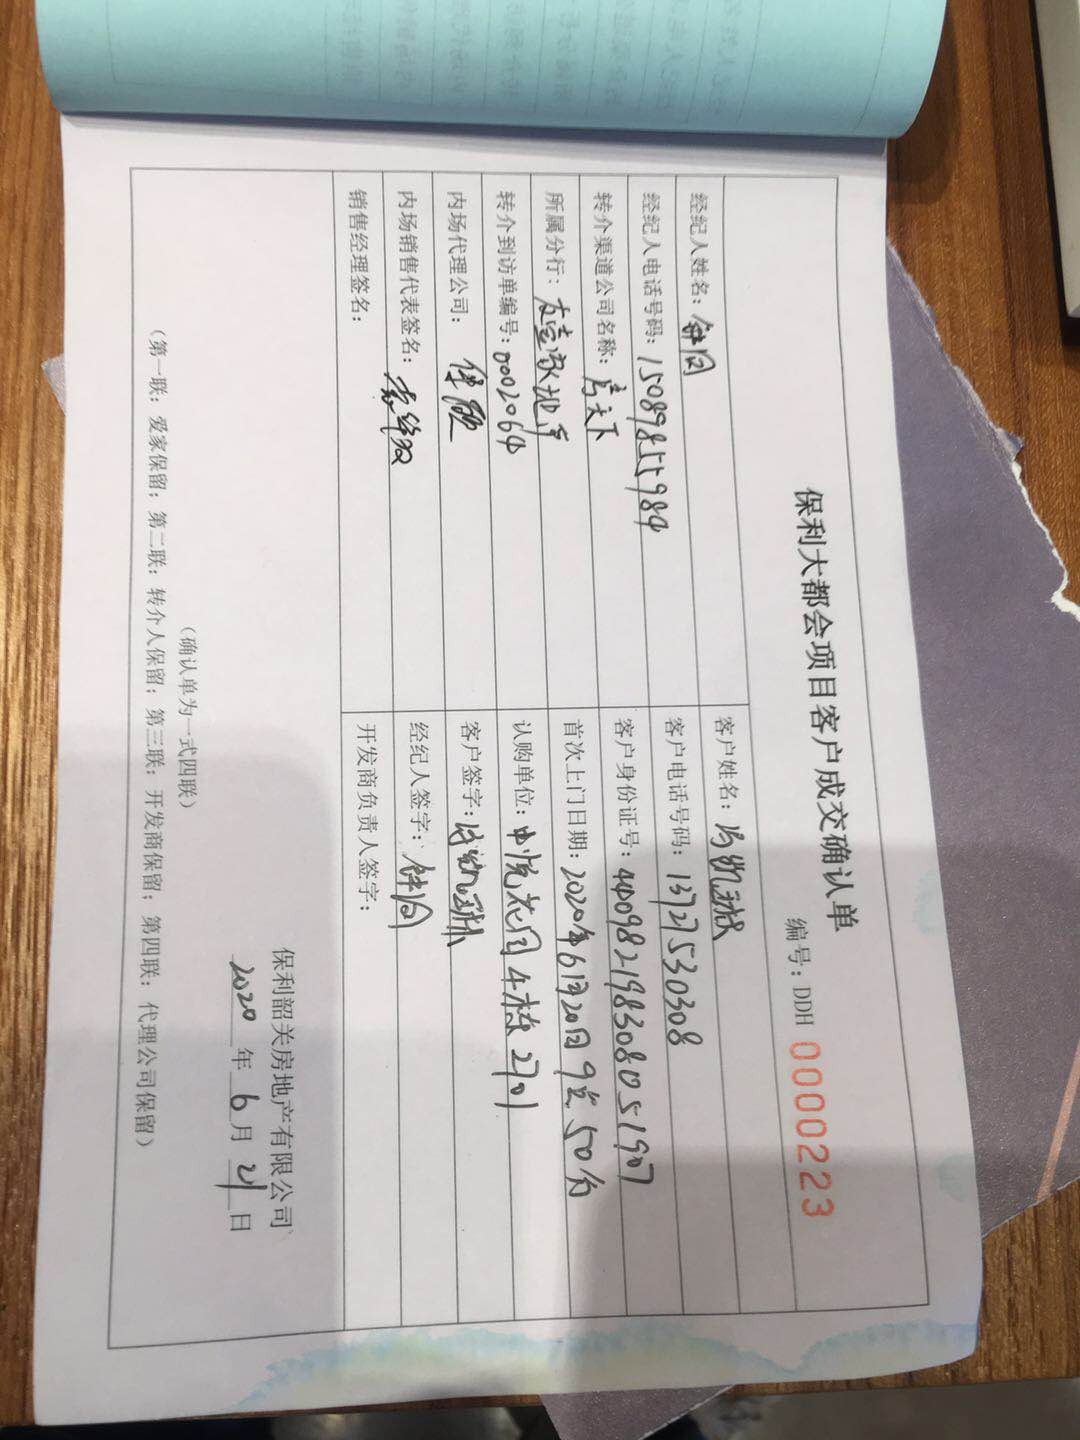 保利大都会项目客户成交确认单
编号：DDH 0000223
经纪人姓名：
客户姓名：
经纪人电话号码：15089855984
客户电话号码：13727530308
转介渠道公司名称：房天下
客户身份证号：440982198308051907
所属分行：
首次上门日期：2020年6月20日9时50分
转介到访单编号：0002064
认购单位：中悦花园4栋2701
内场代理公司：保联
客户签字：
内场销售代表签名：
经纪人签字：
销售经理签名：
开发商负责人签字：
保利韶关房地产有限公司
2020年6月21日
（确认单为一式四联）
（第一联：爱家保留；第二联：转介人保留；第三联：开发商保留；第四联：代理公司保留）